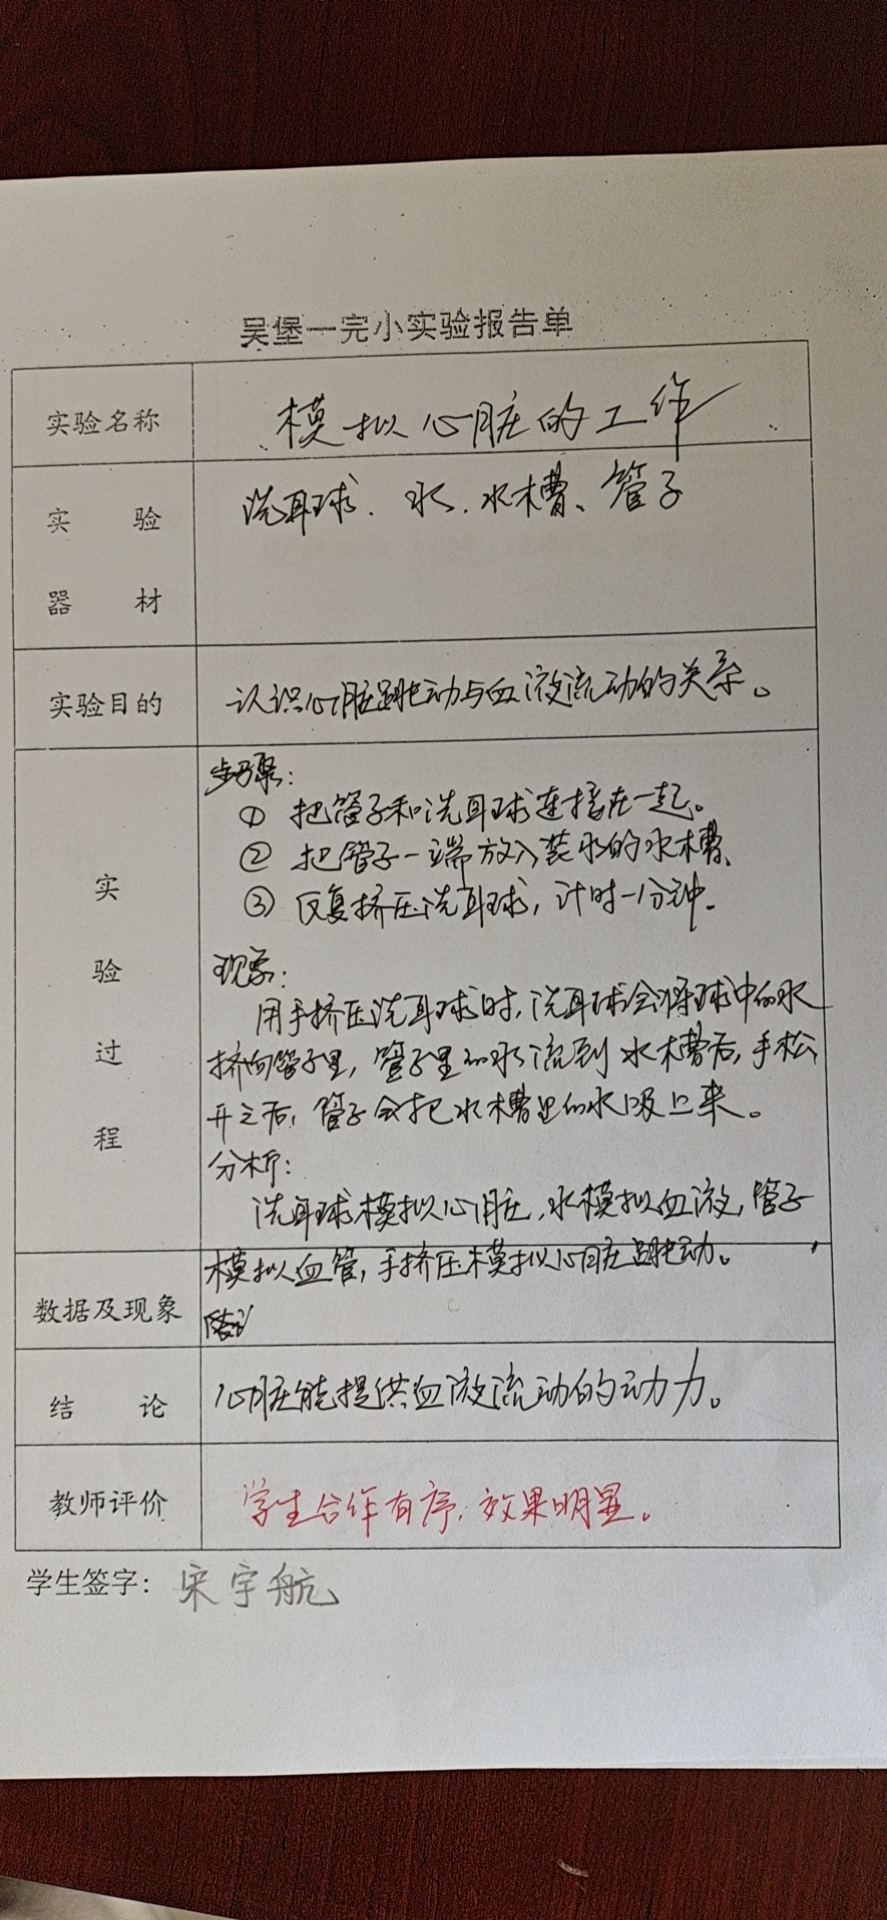 吴堡一完小实验报告单
实验名称 模拟心脏的工作
实验 洗耳球、水、水槽、管子
器材
实验目的 认识心脏跳动与血液流动的关系。
步骤：
① 把管子和洗耳球连接在一起。
② 把管子一端放入装水的水槽、
③ 反复挤压洗耳球，计时一分钟.
实验过程
现象：
用手挤压洗耳球时，洗耳球会将球中的水
挤向管子里，管子里的水流到水槽后，手松
开之后，管子会把水槽里的水吸上来。
分析：
洗耳球模拟心脏，水模拟血液，管子
模拟血管，手挤压模拟心脏跳动。
数据及现象
结论 心脏能提供血液流动的动力。
教师评价 学生合作有序，效果明显。
学生签字：宋宇航